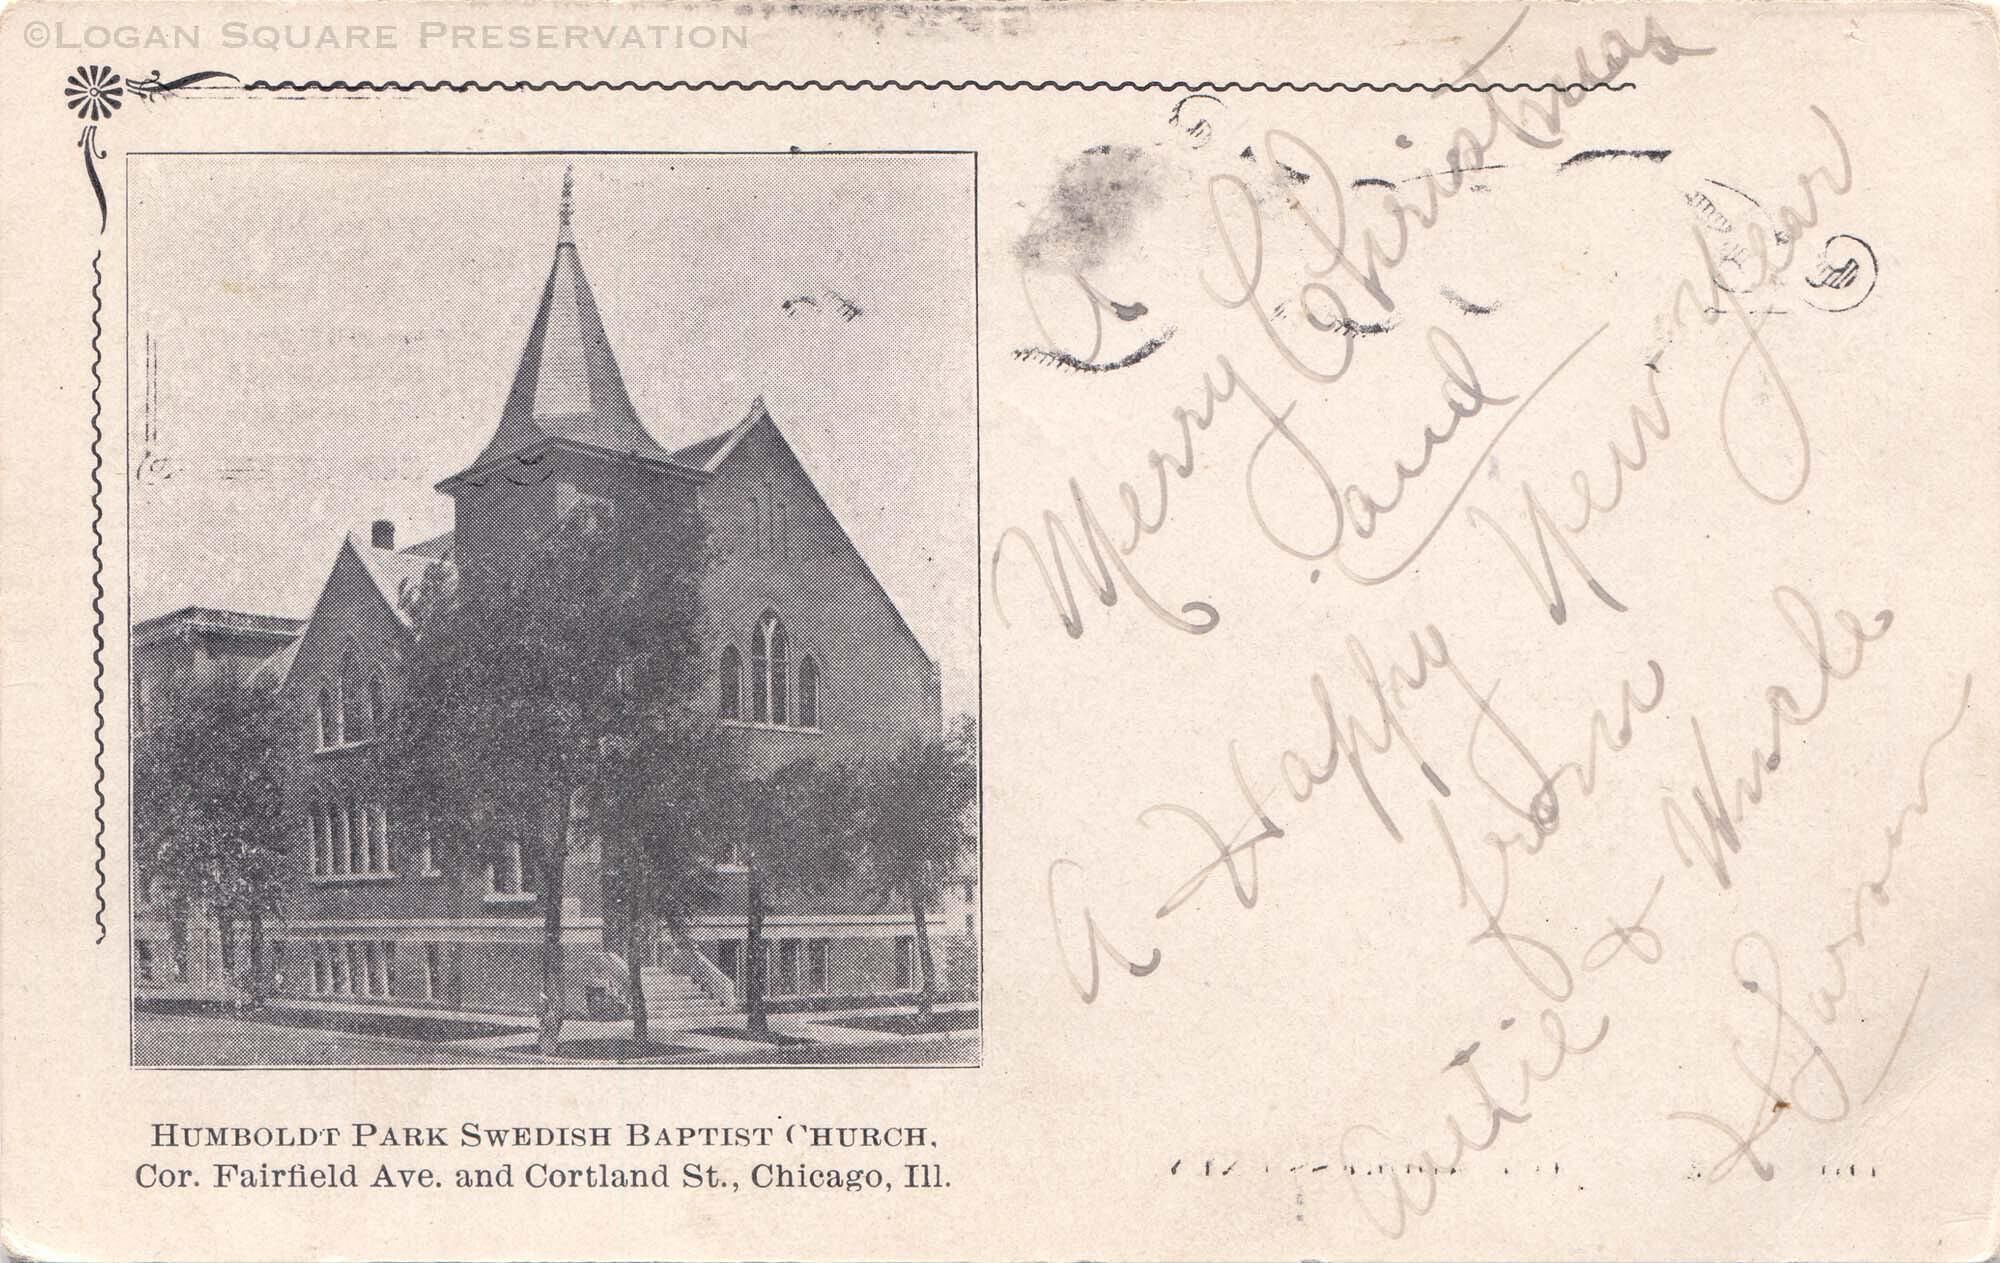 ©LOGAN SQUARE PRESERVATION
A
Merry Christmas
and
A Happy New Year
from
Autie & Uncle
HUMBOLDT PARK SWEDISH BAPTIST CHURCH,
Cor. Fairfield Ave. and Cortland St., Chicago, Ill.